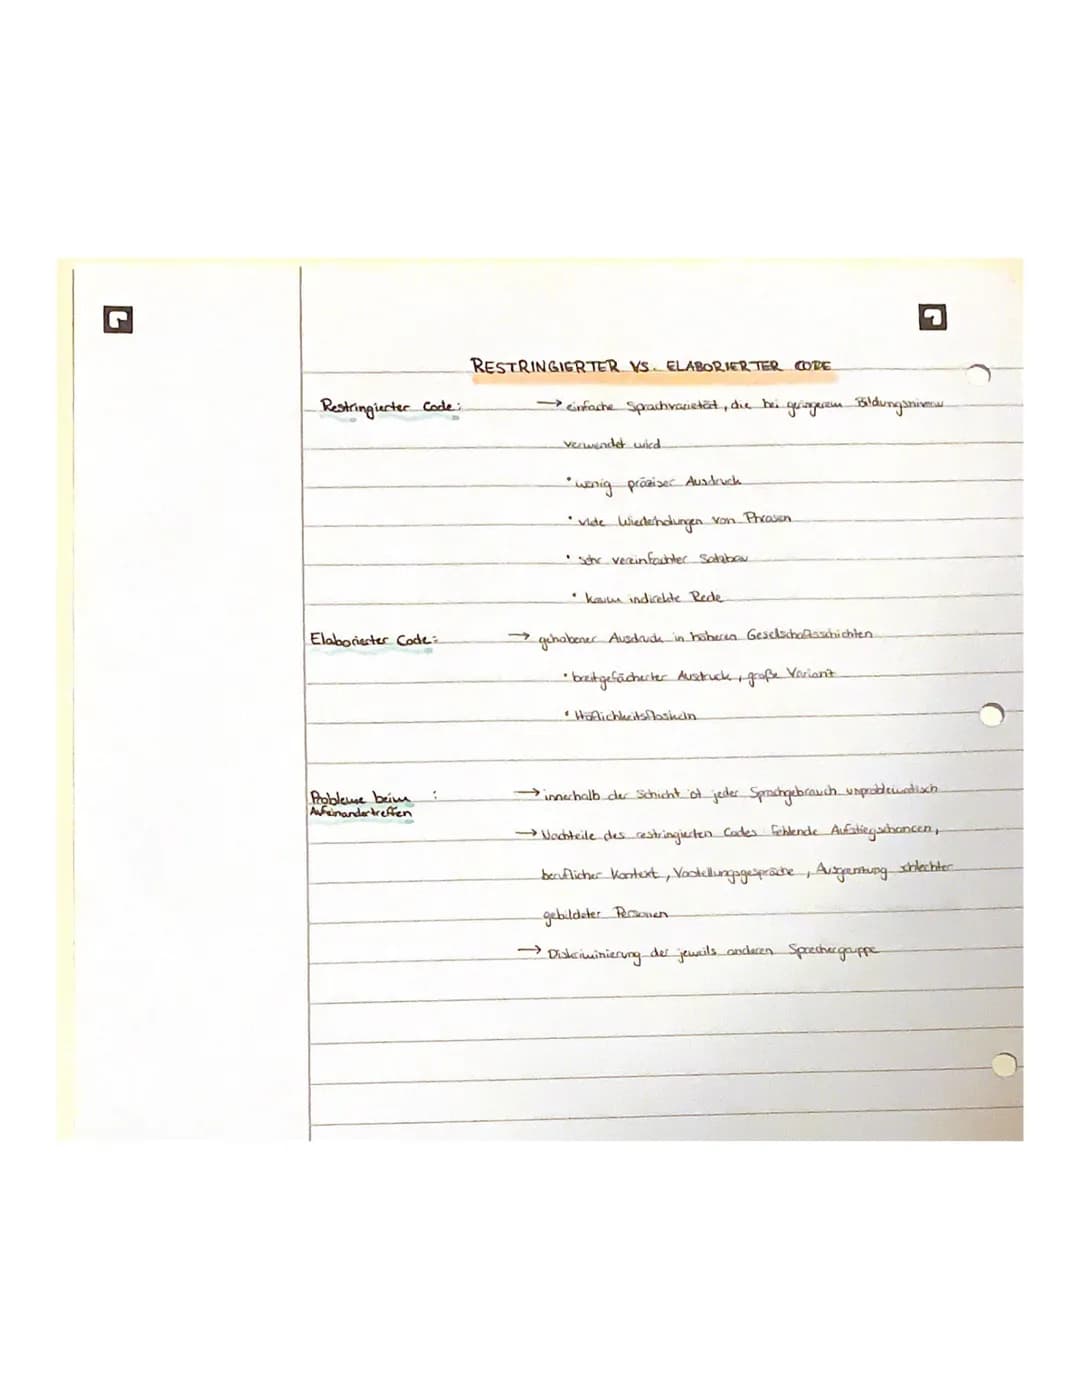 RESTRINGIERTER VS. ELABORIERTER CODE
Restringierter Code: → einfache Sprachvarietät, die bei geringerem Bildungsniveau
verwendet wird
• wenig präziser Ausdruck
• viele Wiederholungen von Phrasen
• sehr vereinfachter Satzbau
• kaum indirekte Rede
Elaborierter Code: → gehobener Ausdruck in höheren Gesellschaftsschichten
• breitgefächerter Ausdruck, große Variant
• Höflichkeitsfloskeln
Probleme beim : → innerhalb der Schicht ist jeder Sprachgebrauch unproblematisch
Aufeinandertreffen
→ Nachteile des restringierten Codes fehlende Aufstiegschancen,
beruflicher Kontext, Vorstellungsgespräche, Ausgrenzung schlechter
gebildeter Personen
→ Diskriminierung der jeweils anderen Sprechergruppe